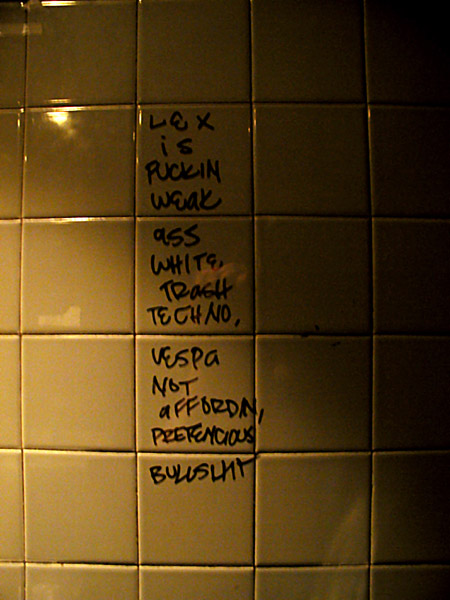 LEX
iS
FUCKIN
WEAK
ass
WHITE,
TRASH
TECHNO,
VESPA
NOT
aFFORDIN,
PRETENCIOUS
BULLSHIT